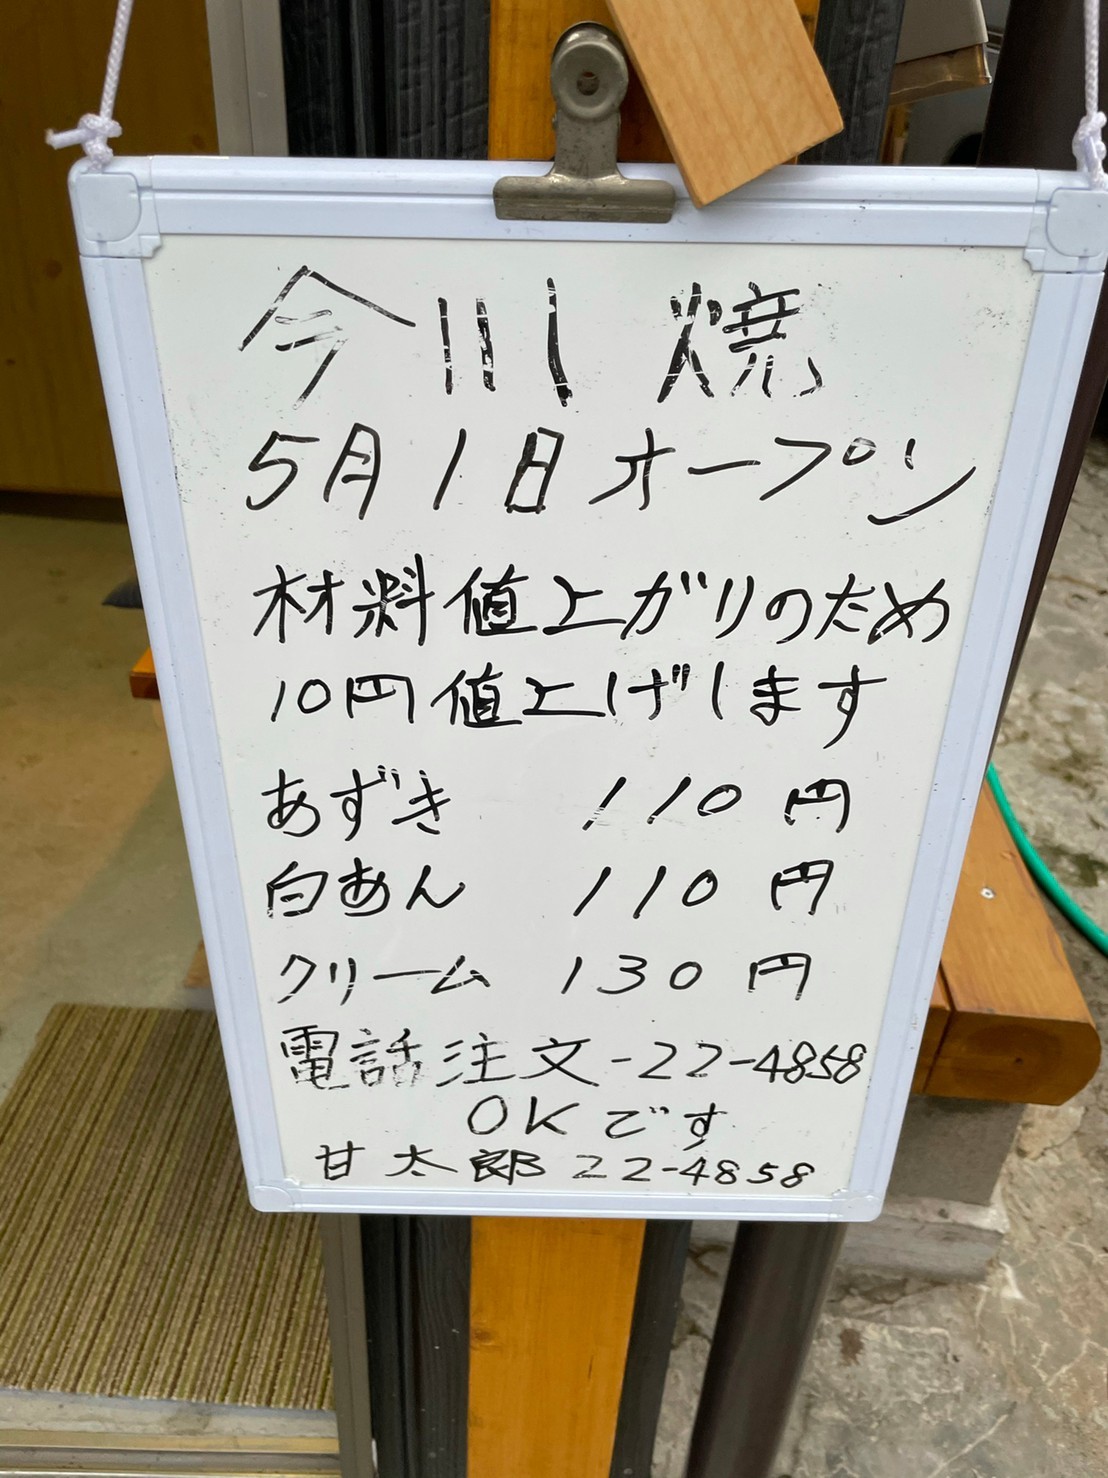 今川焼
5月1日オープン
材料値上がりのため
10円値上げします
あずき 110円
白あん 110円
クリーム 130円
電話注文-22-4858
OKです
甘太郎 22-4858